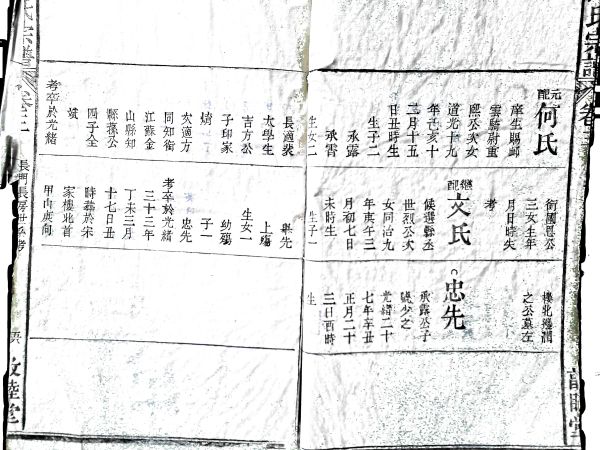 元配
何氏
庠生賜卹
雲騎尉重
熙公次女
道光十九
年己亥十
二月十五
日丑時生
生子二
承露
承霄
生女二
長適裴
太學生
吉方公
子印家
燽
次適方
同知銜
江蘇金
山縣知
縣葆公
四子全
斌
考卒於光緒
銜國恩公
三女生年
月日時失
考
繼配
文氏
候選縣丞
世烈公次
女同治九
年庚午三
月初七日
未時生
生子一
興先
上殤
生女一
幼殤
子一
忠先
考卒於光緒
三十三年
丁未三月
十七日丑
時葬於宋
家樓北首
甲山庚向
樓北邊澗
之公墓左
忠先
承露公子
號少之
光緒二十
七年辛丑
正月二十
三日酉時
生
長西長房世系考
敦睦堂